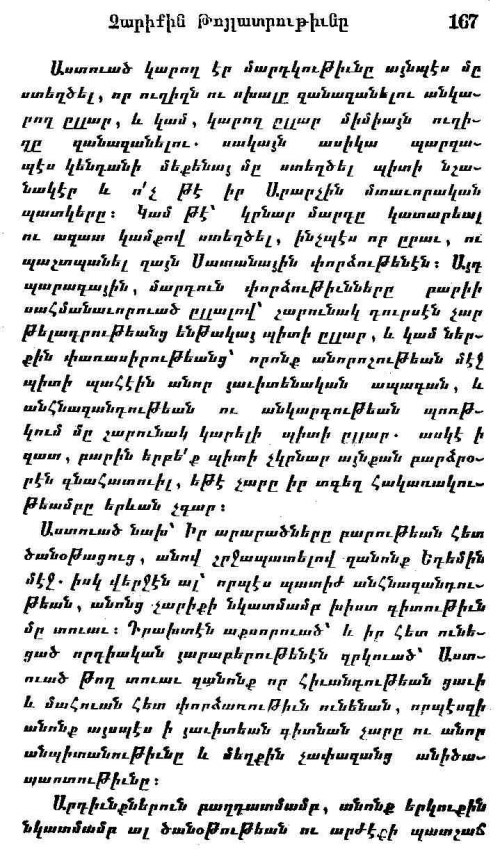 Չարիքին Թոյլատրութիւնը 167
Աստուած կարող էր մարդկութիւնը այնպէս մը
ստեղծել, որ ուղիղն ու սխալը զանազանելու անկա-
րող ըլլար, և կամ, կարող ըլլար միմիայն ուղի-
ղը զանազանելու. սակայն ասիկա պարզա-
պէս կենդանի մեքենայ մը ստեղծել պիտի նշա-
նակէր և ո՛չ թէ իր Արարչին մտաւորական
պատկերը: Կամ թէ՝ կրնար մարդը կատարեալ
ու ազատ կամքով ստեղծել, ինչպէս որ ըրաւ, ու
պաշտպանել զայն Սատանային փորձութենէն: Այդ
պարագային, մարդուն փորձութիւնները բարիի
սահմանաւորուած ըլլալով՝ շարունակ դուրսէն չար
թելադրութեանց ենթակայ պիտի ըլլար, և կամ ներ-
քին փառասիրութեանց՝ որոնք անորոշութեան մէջ
պիտի պահէին անոր յաւիտենական ապագան, և
անհնազանդութեան ու անկարգութեան պոռթ-
կում մը շարունակ կարելի պիտի ըլլար. ասկէ ի
զատ, բարին երբե՛ք պիտի չկրնար այնքան բարձրօ-
րէն գնահատուիլ, եթէ չարը իր տգեղ հակառակու-
թեամբը երևան չգար:
Աստուած նախ՝ Իր արարածները բարութեան հետ
ծանօթացուց, անով շրջապատելով զանոնք Եդեմին
մէջ. իսկ վերջէն ալ՝ որպէս պատիժ անհնազանդու-
թեան, անոնց չարիքի նկատմամբ խիստ գիտութիւն
մը տուաւ: Դրախտէն աքսորուած՝ և իր հետ ունե-
ցած որդիական յարաբերութենէն զրկուած՝ Աստ-
ուած թող տուաւ զանոնք որ հիւանդութեան ցաւի
և մահուան հետ փորձառութիւն ունենան, որպէսզի
անոնք այսպէս ի յաւիտեան գիտնան չարը ու անոր
անպիտանութիւնը և մեղքին չափազանց անիծա-
պարտութիւնը:
Արդիւնքներուն բաղդատմամբ, անոնք երկուքին
նկատմամբ ալ ծանօթութեան ու արժէքի պատշաճ